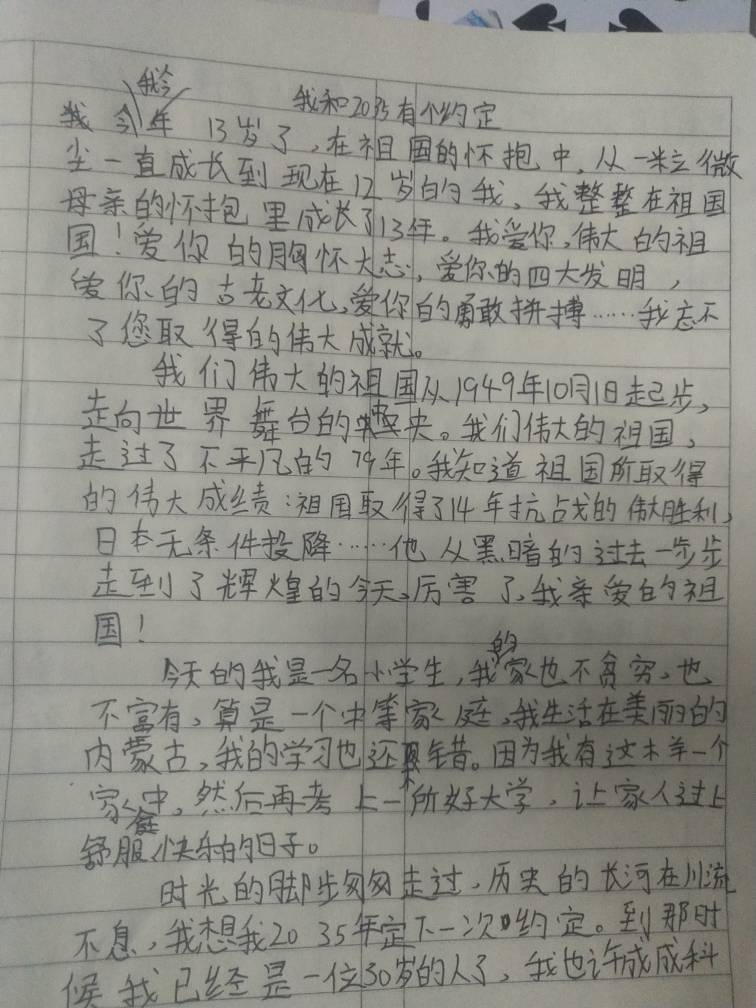 我今
我和2035有个约定
我今年13岁了,在祖国的怀抱中,从一粒微
尘一直成长到现在12岁的我,我整整在祖国
母亲的怀抱里成长了13年。我爱你,伟大的祖
国!爱你的胸怀大志,爱你的四大发明,
爱你的古老文化,爱你的勇敢拼搏……我忘不
了您取得的伟大成就。
我们伟大的祖国从1949年10月1日走起步,
走向世界舞台的中央。我们伟大的祖国,
走过了不平凡的79年。我知道祖国所取得
的伟大成绩:祖国取得了14年抗战的伟大胜利,
日本无条件投降……他从黑暗的过去一步步
走到了辉煌的今天,厉害了,我亲爱的祖
国!
今天的我是一名小学生,我的家也不贫穷,也
不富有,算是一个中等家庭,我生活在美丽的
内蒙古,我的学习也还不错。因为我有这样一个
家庭中,然后再考上一所好大学,让家人过上
舒服快乐的日子。
时光的脚步匆匆走过,历史的长河在川流
不息,我想我2035年定下一次约定。到那时
候我已经是一位30岁的人了,我也许成成科